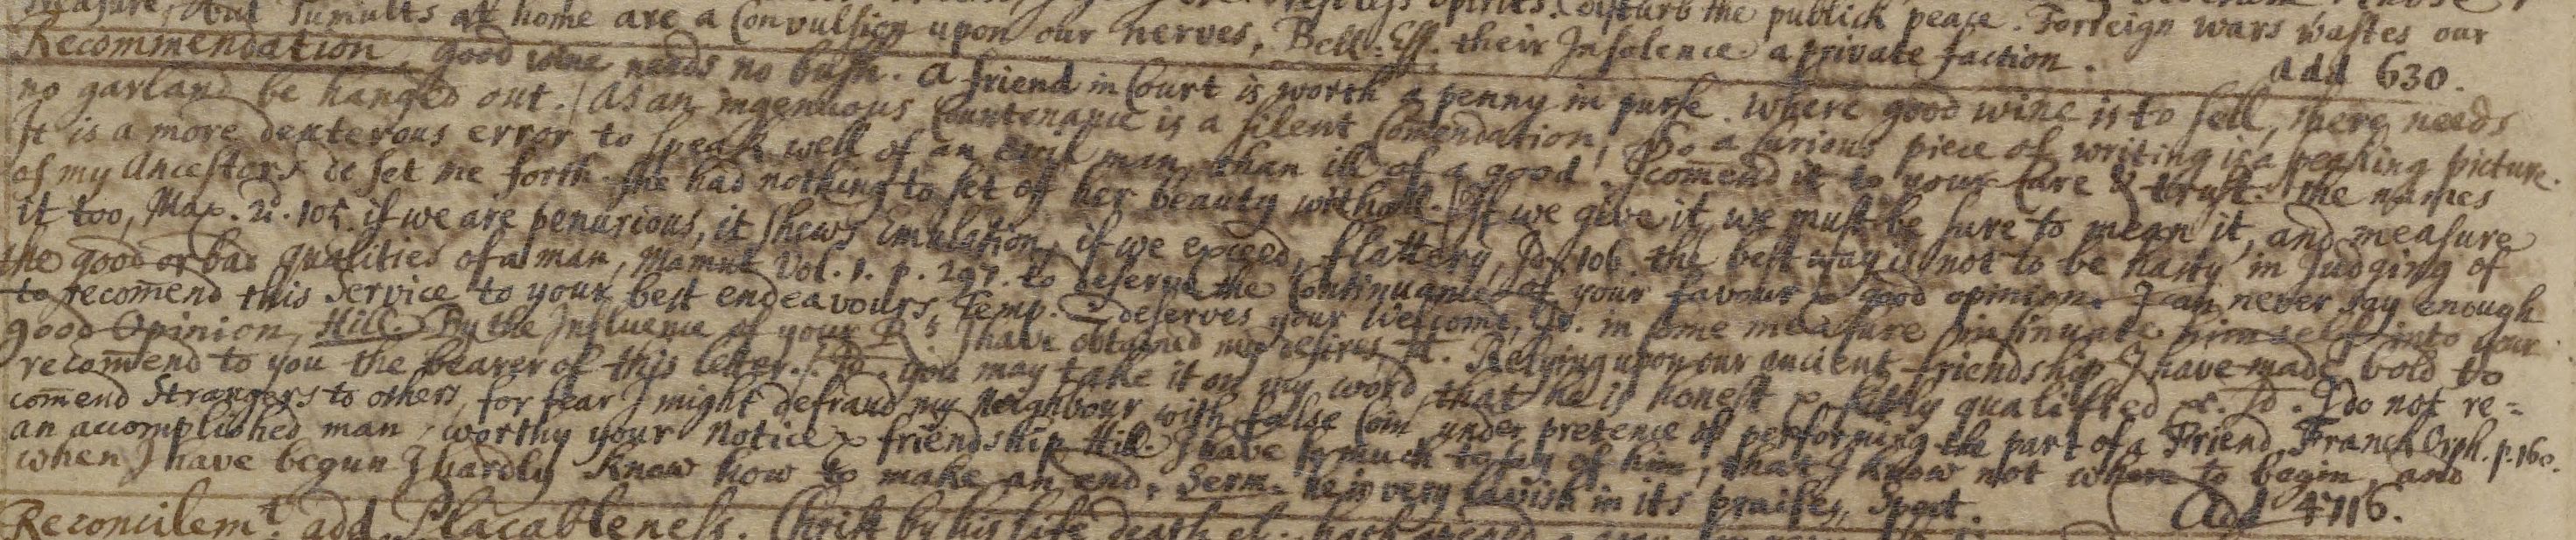 measure, but Tumults at home are a Convulsion upon our nerves, Bell: Ess. their Insolence a private faction. add 630.
Recommendation, good wine needs no bush. A friend in Court is worth a penny in purse. where good wine is to sell, there needs
no garland be hanged out. / As an ingenuous Countenance is a silent Com̄endation, So a curious piece of writing is a speaking picture.
It is a more dexterous error to speak well of an evil man, than ill of a good. I com̄end it to your Care & trust. the names
of my Ancestors do set me forth. She had nothing to set of her beauty withall. / If we give it, we must be sure to mean it, and measure
it too, Max. 2d. 105. if we are penurious, it shews Emulation, if we exceed, flattery, Id. 106. the best way is not to be hasty in Judging of
the good or bad qualities of a man, Vol. 1. p. 297. to deserve the Continuance of your favour & good opinion. I can never say enough
to recom̄end this Service to your best endeavours, Temp. deserves your Welcome, Id. in some measure insinuate himself into your
good Opinion, Hill. By the Influence of your I have obtained my desires, It. Relying upon our ancient friendship I have made bold to
recom̄end to you the bearer of this letter. / Id. you may take it on my word that he is honest & fitly qualified &c. Id. I do not re=
com̄end Strangers to others, for fear I might defraud my Neighbour with false Coin under pretence of performing the part of a Friend, Franch Orph. p. 160.
an accomplished man, worthy your Notice & friendship Hill. I have so much to say of him, that I know not where to begin, and
when I have begun I hardly know how to make an end. Serm. he is very lavish in its praises, Spect. Add 4716.
Reconcilem.t add Placableness. Christ by his life death